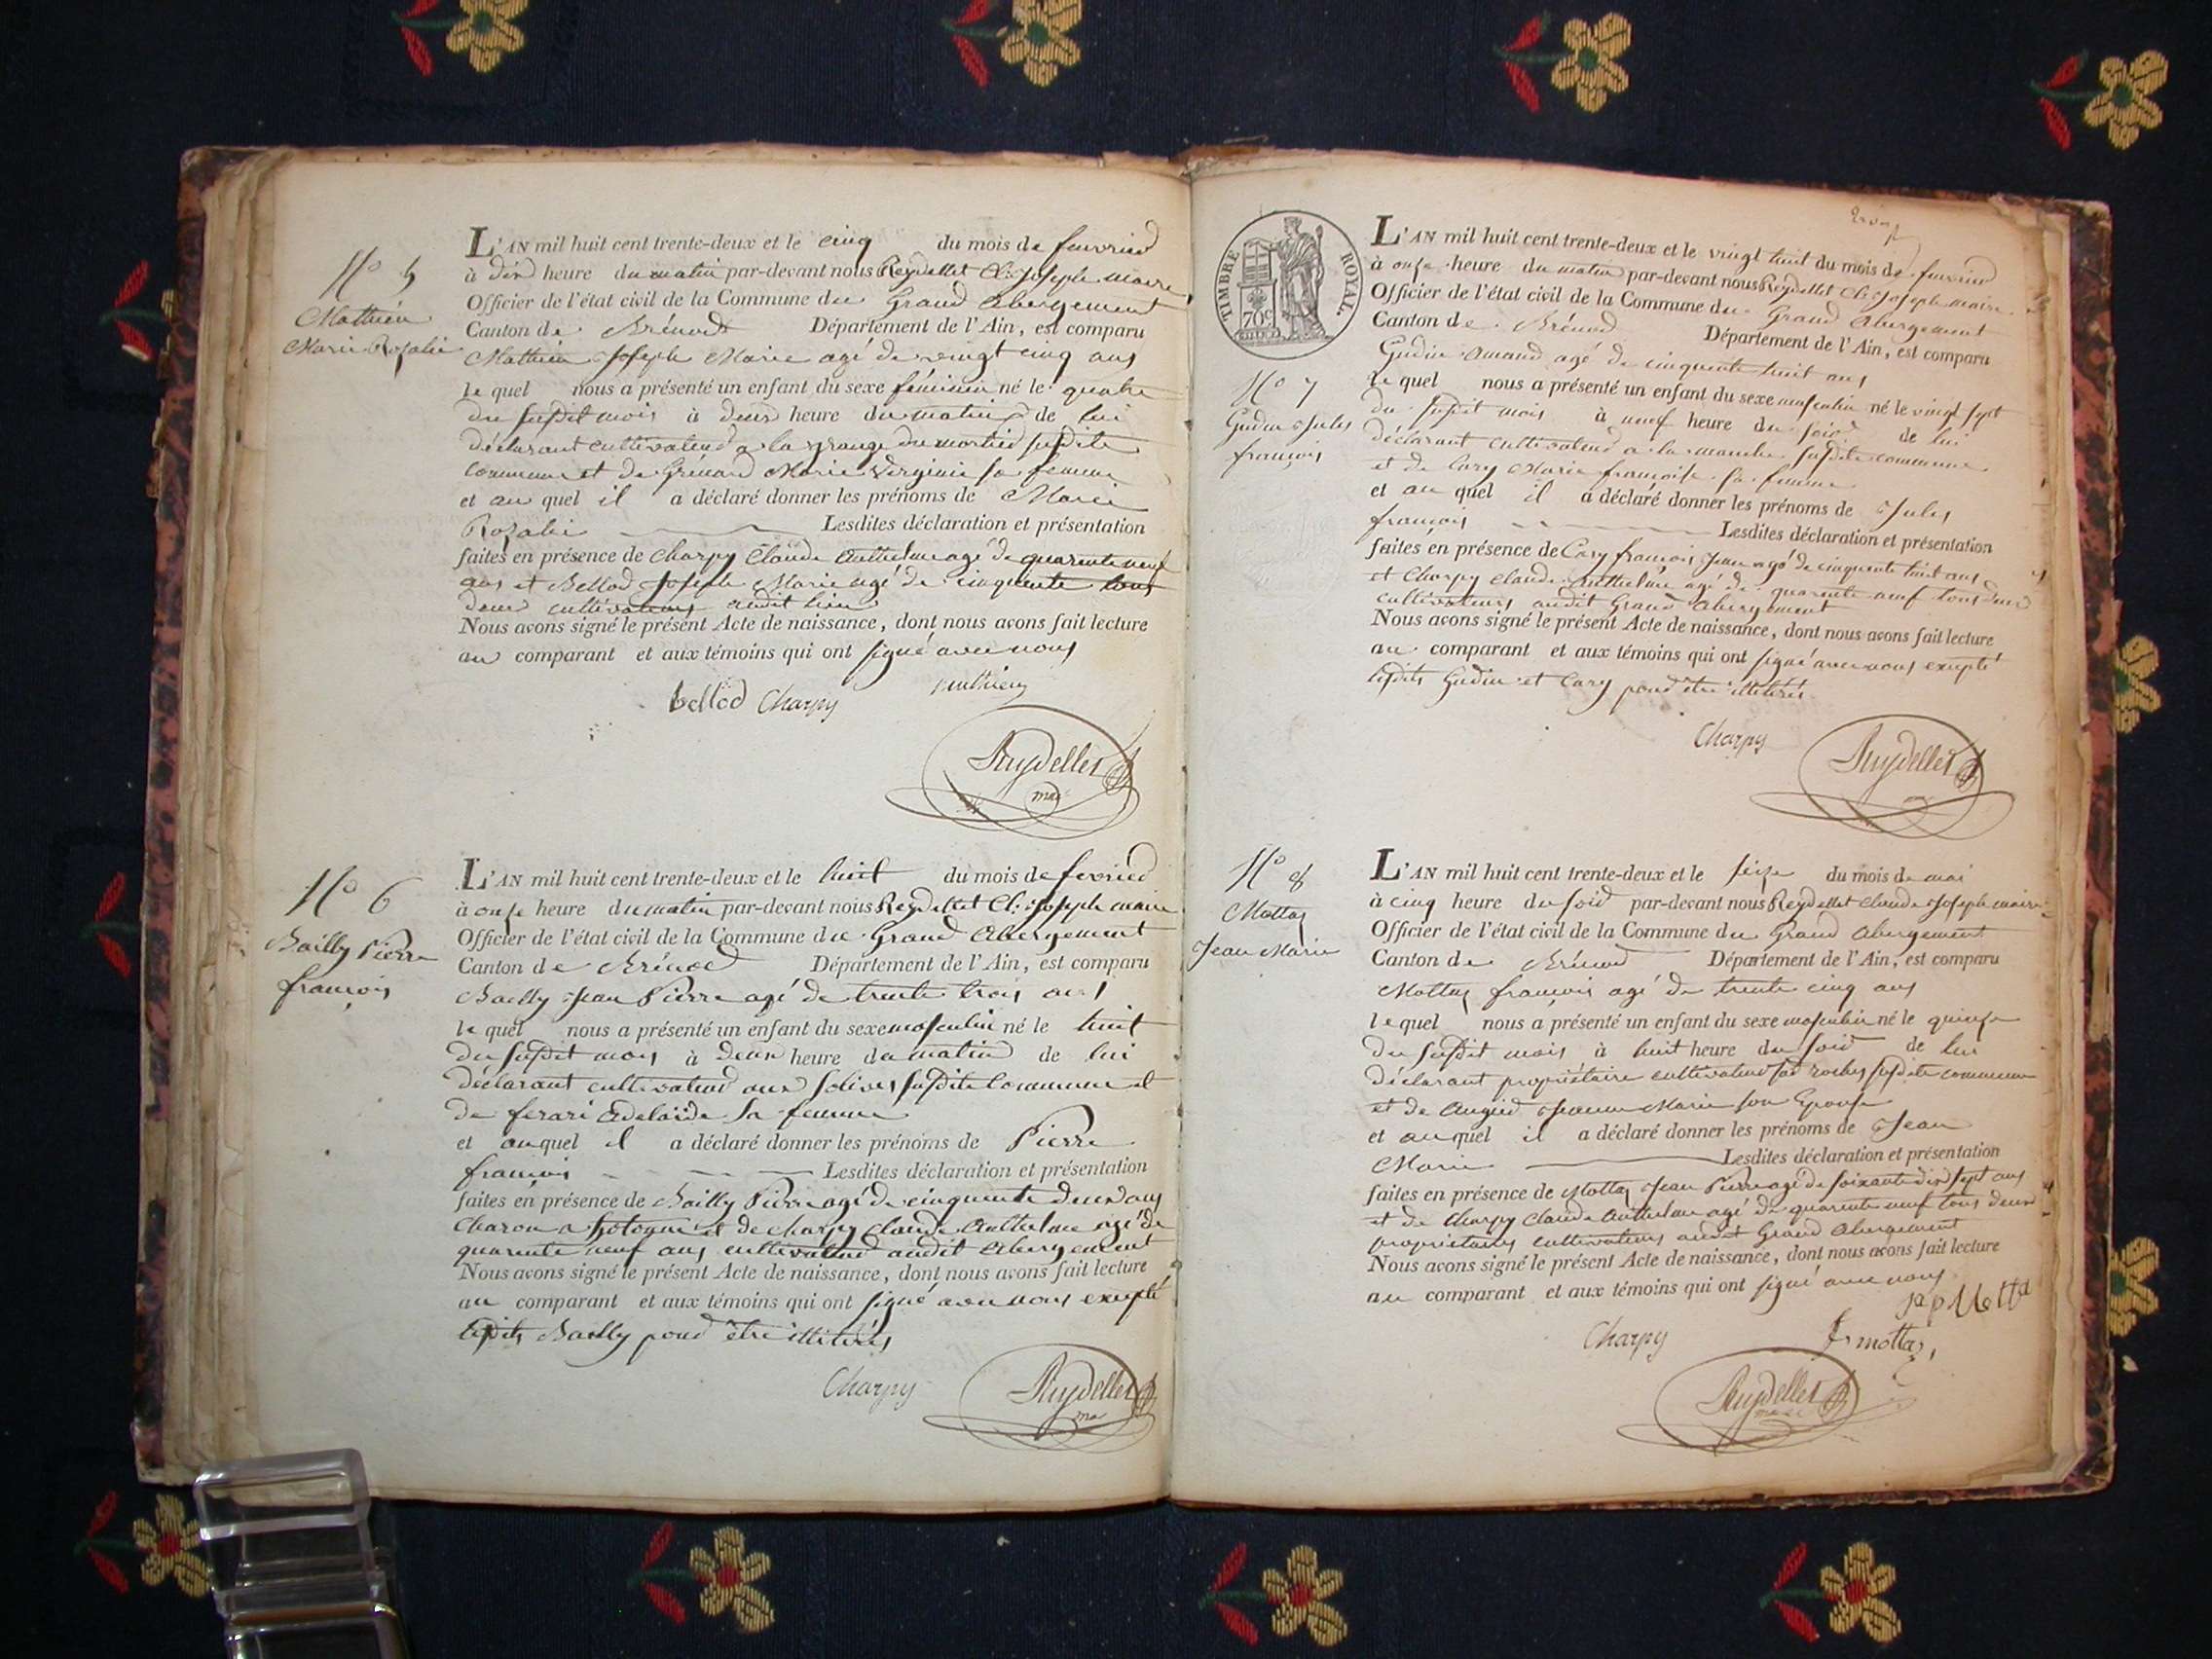 N° 5
Mathieu
Marie Rosalie
L'AN mil huit cent trente-deux et le cinq du mois de fevrier
à dix heure du matin par-devant nous Reydellet Cl: Joseph maire
Officier de l'état civil de la Commune du Grand Abergement
Canton de Brénod Département de l'Ain, est comparu
Mathieu Joseph Marie agé de vingt cinq ans
le quel nous a présenté un enfant du sexe féminin né le quatre
du susdit mois à deux heure du matin de lui
déclarant cultivateur a la grange du mortier susdite
commune et de Grenard Marie Virginie sa femme
et au quel il a déclaré donner les prénoms de Marie
Rosalie Lesdites déclaration et présentation
faites en présence de Charpy Claude Anthelme agé de quarante neuf
ans et Bellod Joseph Marie agé de cinquante tous
deux cultivateurs audit lieu
Nous avons signé le présent Acte de naissance, dont nous avons fait lecture
au comparant et aux témoins qui ont signé avec nous
bellod Charpy mathieu
Reydellet
mai
N° 6
Bailly Pierre
françois
L'AN mil huit cent trente-deux et le huit du mois de fevrier
à onze heure du matin par-devant nous Reydellet Cl: Joseph maire
Officier de l'état civil de la Commune du Grand Abergement
Canton de Brénod Département de l'Ain, est comparu
Bailly Jean Pierre agé de trente trois ans
le quel nous a présenté un enfant du sexe masculin né le huit
du susdit mois à deux heure du matin de lui
déclarant cultivateur aux solives susdite commune et
de ferari Adelaïde sa femme
et auquel il a déclaré donner les prénoms de Pierre
françois Lesdites déclaration et présentation
faites en présence de Bailly Pierre agé de cinquante deux ans
charon a hotonne et de charpy Claude Anthelme agé de
quarante neuf ans cultivateur audit Abergement
Nous avons signé le présent Acte de naissance, dont nous avons fait lecture
au comparant et aux témoins qui ont signé avec nous excepté
lesdits Bailly pour être illitérés
Charpy Reydellet
ma
TIMBRE ROYAL.
70c
L'AN mil huit cent trente-deux et le vingt huit du mois de fevrier
à onze heure du matin par-devant nous Reydellet Cl: Joseph maire
Officier de l'état civil de la Commune du Grand Abergement
Canton de Brénod Département de l'Ain, est comparu
N° 7
Gudin Jules
françois
Gudin Amand agé de cinquante huit ans
le quel nous a présenté un enfant du sexe masculin né le vingt sept
du susdit mois à neuf heure du soir de lui
déclarant cultivateur a la manche susdite commune
et de Cary Marie françoise sa femme
et au quel il a déclaré donner les prénoms de Jules
françois Lesdites déclaration et présentation
faites en présence de Cary françois Jean agé de cinquante huit ans
et Charpy Claude Anthelme agé de quarante neuf tous deux
cultivateurs audit Grand Abergement
Nous avons signé le présent Acte de naissance, dont nous avons fait lecture
au comparant et aux témoins qui ont signé avec nous excepté
lesdits Gudin et Cary pour être illitérés
Charpy Reydellet
N° 8
Mottaz
Jean Marie
L'AN mil huit cent trente-deux et le seize du mois de mai
à cinq heure du soir par-devant nous Reydellet Claude Joseph maire
Officier de l'état civil de la Commune du Grand Abergement
Canton de Brénod Département de l'Ain, est comparu
Mottaz françois agé de trente cinq ans
le quel nous a présenté un enfant du sexe masculin né le quinze
du susdit mois à huit heure du soir de lui
déclarant propriétaire cultivateur roches susdite commune
et de Augier Jeanne Marie son Epouse
et auquel il a déclaré donner les prénoms de Jean
Marie Lesdites déclaration et présentation
faites en présence de Mottaz Jean Pierre agé de soixante dix sept ans
et de Charpy Claude Anthelme agé de quarante neuf tous deux
propriétaires cultivateurs audit Grand Abergement
Nous avons signé le présent Acte de naissance, dont nous avons fait lecture
au comparant et aux témoins qui ont signé avec nous
Charpy fs mottaz
Reydellet